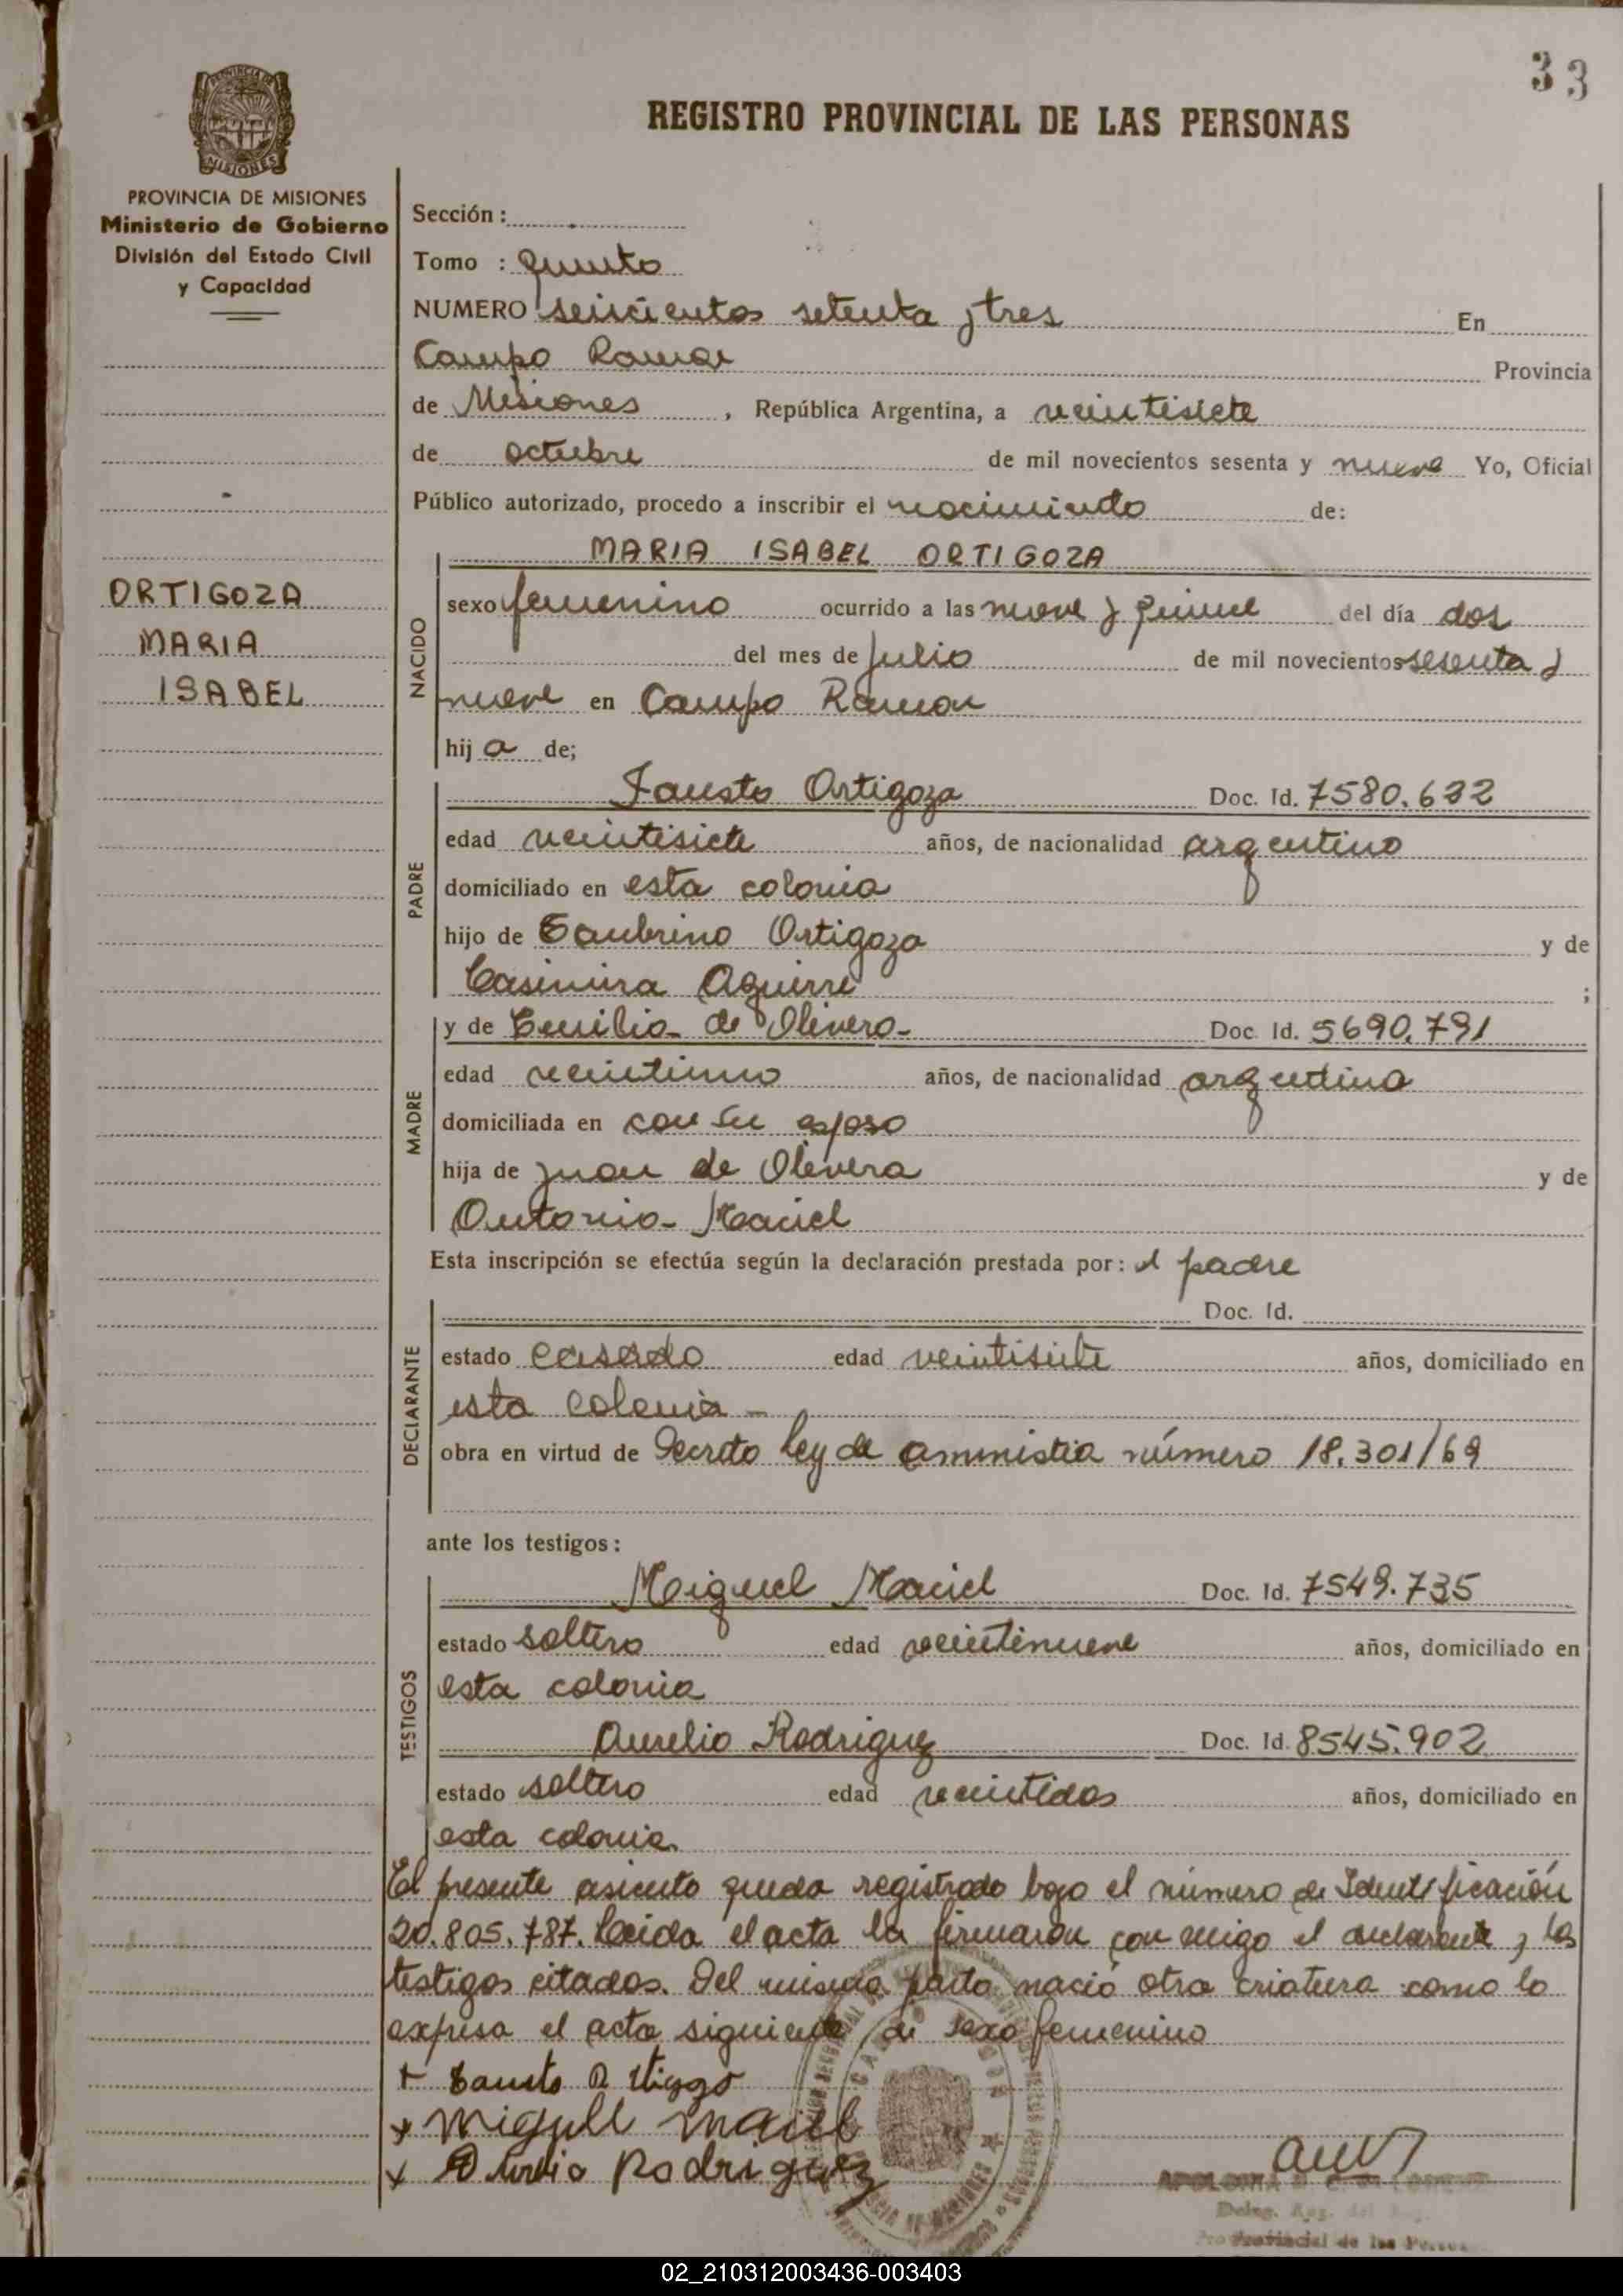 33
REGISTRO PROVINCIAL DE LAS PERSONAS
PROVINCIA DE MISIONES
Ministerio de Gobierno
División del Estado Civil
y Capacidad
Sección :
Tomo : quinto
NUMERO seiscientos setenta y tres En
Campo Ramon Provincia
de Misiones , República Argentina, a veintisiete
de octubre de mil novecientos sesenta y nueve Yo, Oficial
Público autorizado, procedo a inscribir el nacimiento de:
ORTIGOZA
MARIA
ISABEL
NACIDO
MARIA ISABEL ORTIGOZA
sexo femenino ocurrido a las nueve y quince del día dos
del mes de julio de mil novecientos sesenta y
nueve en Campo Ramon
hij a de;
PADRE
Fausto Ortigoza Doc. Id. 7580.632
edad veintisiete años, de nacionalidad argentino
domiciliado en esta colonia
hijo de Ortigoza y de
Casimira Aguirre ;
MADRE
y de Emilia de Olivera - Doc. Id. 5690.791
edad veintiuno años, de nacionalidad argentina
domiciliada en con su esposo
hija de Juan de Olivera y de
Antonia Maciel
Esta inscripción se efectúa según la declaración prestada por: el padre
DECLARANTE
Doc. Id.
estado casado edad veintisiete años, domiciliado en
esta colonia -
obra en virtud de Decreto Ley de ammistia número 18.301/69
ante los testigos:
TESTIGOS
Miguel Maciel Doc. Id. 7549.735
estado soltero edad veintinueve años, domiciliado en
esta colonia
Aurelio Rodriguez Doc. Id. 8545.902
estado soltero edad veintidos años, domiciliado en
esta colonia
El presente asiento queda registrado bajo el número de Identificación
20.805.787. Leida el acta la firmaron con migo el declarante y los
testigos citados. Del mismo parto nació otra criatura como lo
expresa el acta siguiente de sexo femenino
+ Fausto
x Miguel Maciel
x Rodriguez
Provincial de las
02_210312003436-003403